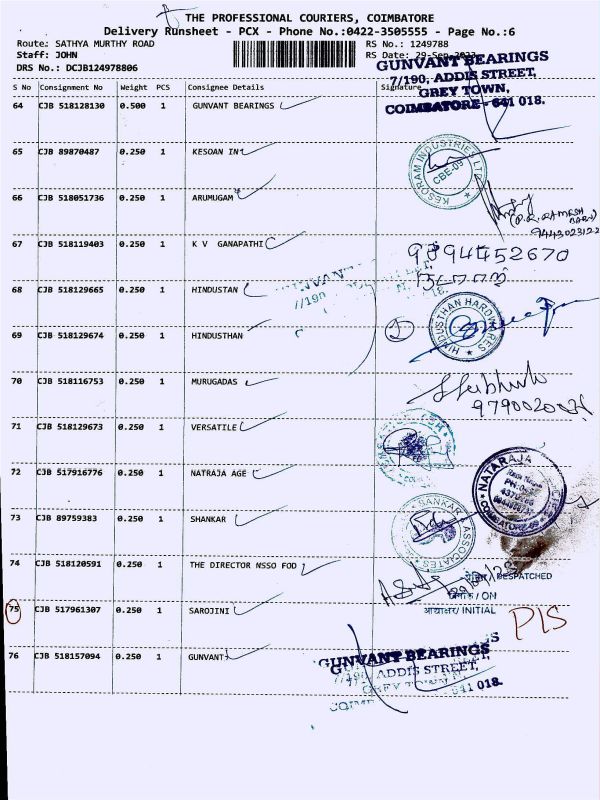 THE PROFESSIONAL COURIERS, COIMBATORE
Delivery Runsheet - PCX - Phone No.:0422-3505555 - Page No.:6
Route: SATHYA MURTHY ROAD RS No.: 1249788
Staff: JOHN RS Date: 29-Sep-2023
DRS No.: DCJB124978806
GUNVANT BEARINGS
7/190, ADDIS STREET,
GREY TOWN,
COIMBATORE - 641 018.
S No Consignment No Weight PCS Consignee Details Signature
64 CJB 518128130 0.500 1 GUNVANT BEARINGS
65 CJB 89870487 0.250 1 KESOAN IN
KESORAM INDUSTRIES LTD
CBE-09
66 CJB 518051736 0.250 1 ARUMUGAM
(P.R. RAMESH BABU)
9443023122
67 CJB 518119403 0.250 1 K V GANAPATHI
9894452670
68 CJB 518129665 0.250 1 HINDUSTAN
69 CJB 518129674 0.250 1 HINDUSTHAN
1
HINDUSTHAN HARDWARES
70 CJB 518116753 0.250 1 MURUGADAS
71 CJB 518129673 0.250 1 VERSATILE
72 CJB 517916776 0.250 1 NATRAJA AGE
NATARAJA
73 CJB 89759383 0.250 1 SHANKAR
SANKAR ASSOCIATES
74 CJB 518120591 0.250 1 THE DIRECTOR NSSO FOD
प्रेषित/ DESPATCHED
दिनांक / ON
आद्याक्षर/ INITIAL
75 CJB 517961307 0.250 1 SAROJINI
PIS
76 CJB 518157094 0.250 1 GUNVANT
GUNVANT BEARINGS
7/190, ADDIS STREET,
GREY TOWN
641 018.